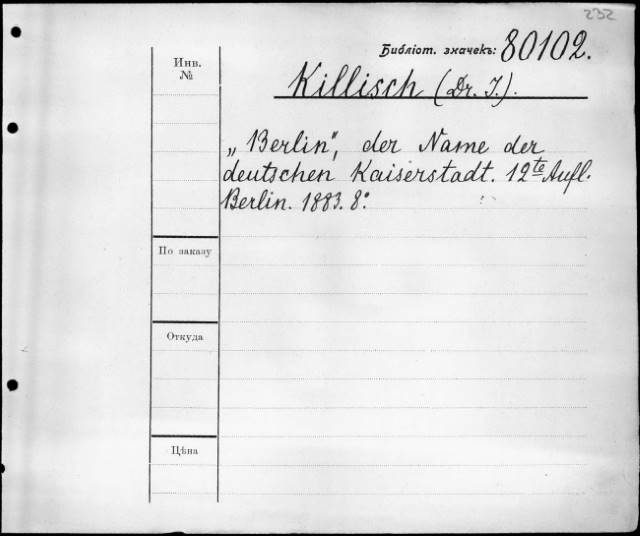 232
Библіот. значекъ: 80102.
Инв.
№
Killisch (Dr. J.).
„Berlin", der Name der
deutschen Kaiserstadt. 12te Aufl.
Berlin. 1883. 8°.
По заказу
Откуда
Цѣна